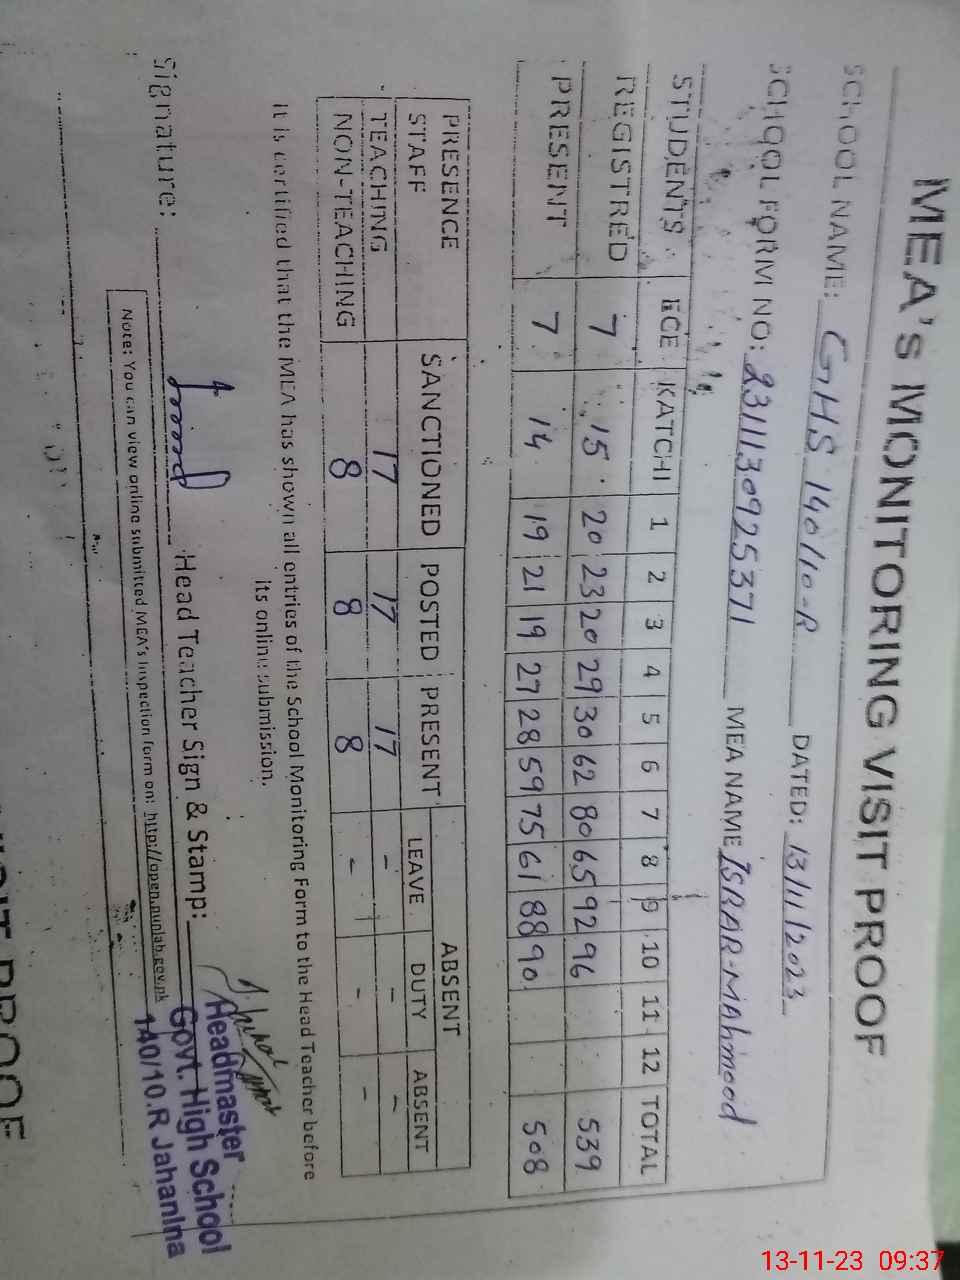 MEA's MONITORING VISIT PROOF
SCHOOL NAME: GHS 140/10-R DATED: 13/11/2023
SCHOOL FORM NO: 23111309253 71 MEA NAME ISRAR-MAhmood
STUDENTS ECE KATCHI 1 2 3 4 5 6 7 8 9 10 11 12 TOTAL
REGISTRED 7 15 20 23 20 29 30 62 80 65 92 96 539
PRESENT 7 14 19 21 19 27 28 59 75 61 88 90 508
PRESENCE STAFF SANCTIONED POSTED PRESENT ABSENT
LEAVE DUTY ABSENT
TEACHING 17 17 17 - - -
NON-TEACHING 8 8 8 - - -
It is certified that the MEA has shown all entries of the School Monitoring Form to the Head Teacher before
its online submission.
Signature: Head Teacher Sign & Stamp:
Headmaster
Govt. High School
140/10.R Jahania
Note: You can view online submitted MEA's Inspection form on: http://open.punjab.gov.pk
13-11-23 09:37